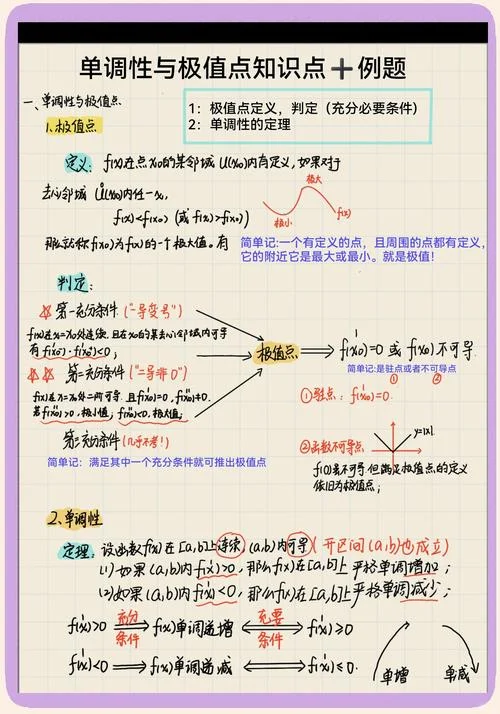 单调性与极值点知识点＋例题
一、单调性与极值点
1：极值点定义，判定（充分必要条件）
2：单调性的定理
1.极值点
定义：f(x)在点x₀的某邻域U(x₀)内有定义，如果对于
去心邻域Ů(x₀)内任一x，
f(x)<f(x₀)（或f(x)>f(x₀)）
那么就称f(x₀)为f(x)的一个极大值。有
极大
极小
f(x)
简单记:一个有定义的点，且周围的点都有定义，
它的附近它是最大或最小。就是极值！
判定：
☆ 第一充分条件（"一导变号"）
f(x)在x=x₀处连续，且在x₀的某去心邻域内可导
☆☆ 第二充分条件（"二导非0"）
f(x)在x=x₀处二阶可导，且
第三充分条件（几乎不考！）
简单记：满足其中一个充分条件就可推出极值点
极值点 ⟹ f'(x₀)=0 或 f'(x₀)不可导.
简单记:是驻点或者不可导点
① ②
①驻点：f'(x₀)=0.
②函数不可导点
y=|x|
f(x)虽不可导，但满足极值点的定义
依旧为极值点；
2.单调性
定理：设函数f(x)在[a,b]上连续，(a,b)内可导（开区间(a,b)也成立）
(1)如果(a,b)内f'(x)>0，那么f(x)在[a,b]上严格单调增加；
(2)如果(a,b)内f'(x)<0，那么f(x)在[a,b]上严格单调减少；
充分 充要
f'(x)>0 ⟹ f(x)单调递增 ⟺ f'(x)≥0
条件 条件
f'(x)<0 ⟹ f(x)单调递减 ⟺ f'(x)≤0.
单增 单减